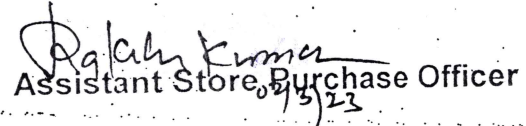 Kumar
Assistant Store Purchase Officer
02/3/23